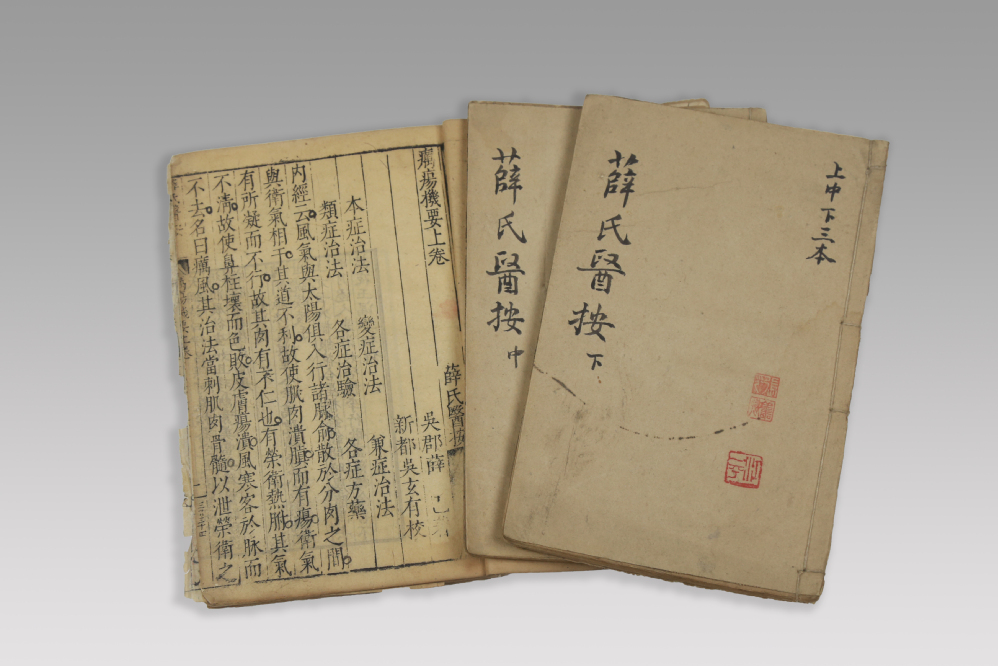 上中下三本
薛氏醫按下
薛氏醫按中
薛氏醫按
癘瘍機要上卷
吳郡薛
新都吳玄有校
本症治法 變症治法 兼症治法
類症治法 各症治驗 各症方藥
內經云風氣與太陽俱入行諸脈俞散於分肉之間
與衛氣相干其道不利故使肌肉潰䐜而有瘍衛氣
有所凝而不行故其肉有不仁也有榮衛熱胕其氣
不清故使鼻柱壞而色敗皮膚瘍潰風寒客於脉而
不去名曰癘風其治法當刺肌肉骨髓以泄榮衛之